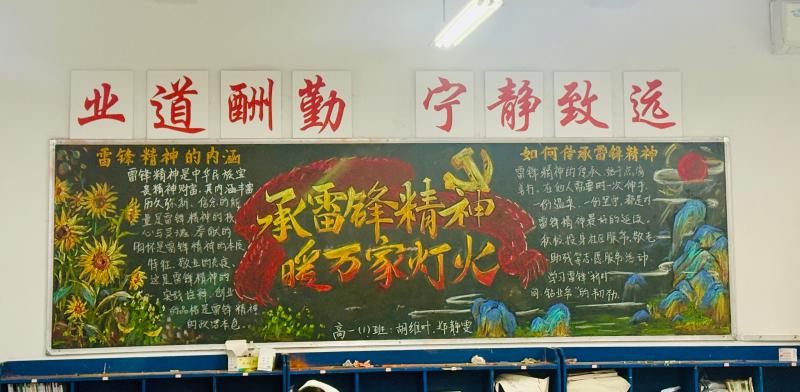 业道酬勤 宁静致远
雷锋精神的内涵
雷锋精神是中华民族宝
贵精神财富,其内涵丰富
历久弥新。信念的能
量是雷锋精神的核
心与灵魂。奉献的
胸怀是雷锋精神的本质
特征。敬业的态度,
这是雷锋精神的
实践诠释。创业
的品格是雷锋精神
的政治本色
承雷锋精神
暖万家灯火
高一(1)班:胡维叶.郑静雯
如何传承雷锋精神
雷锋精神的传承,始于点滴
善行。在他人需要时一次伸手
一份温柔、一份坚守,都是对
雷锋精神最好的延续。
积极投身社区服务,敬老
助残等志愿服务活动
学习雷锋